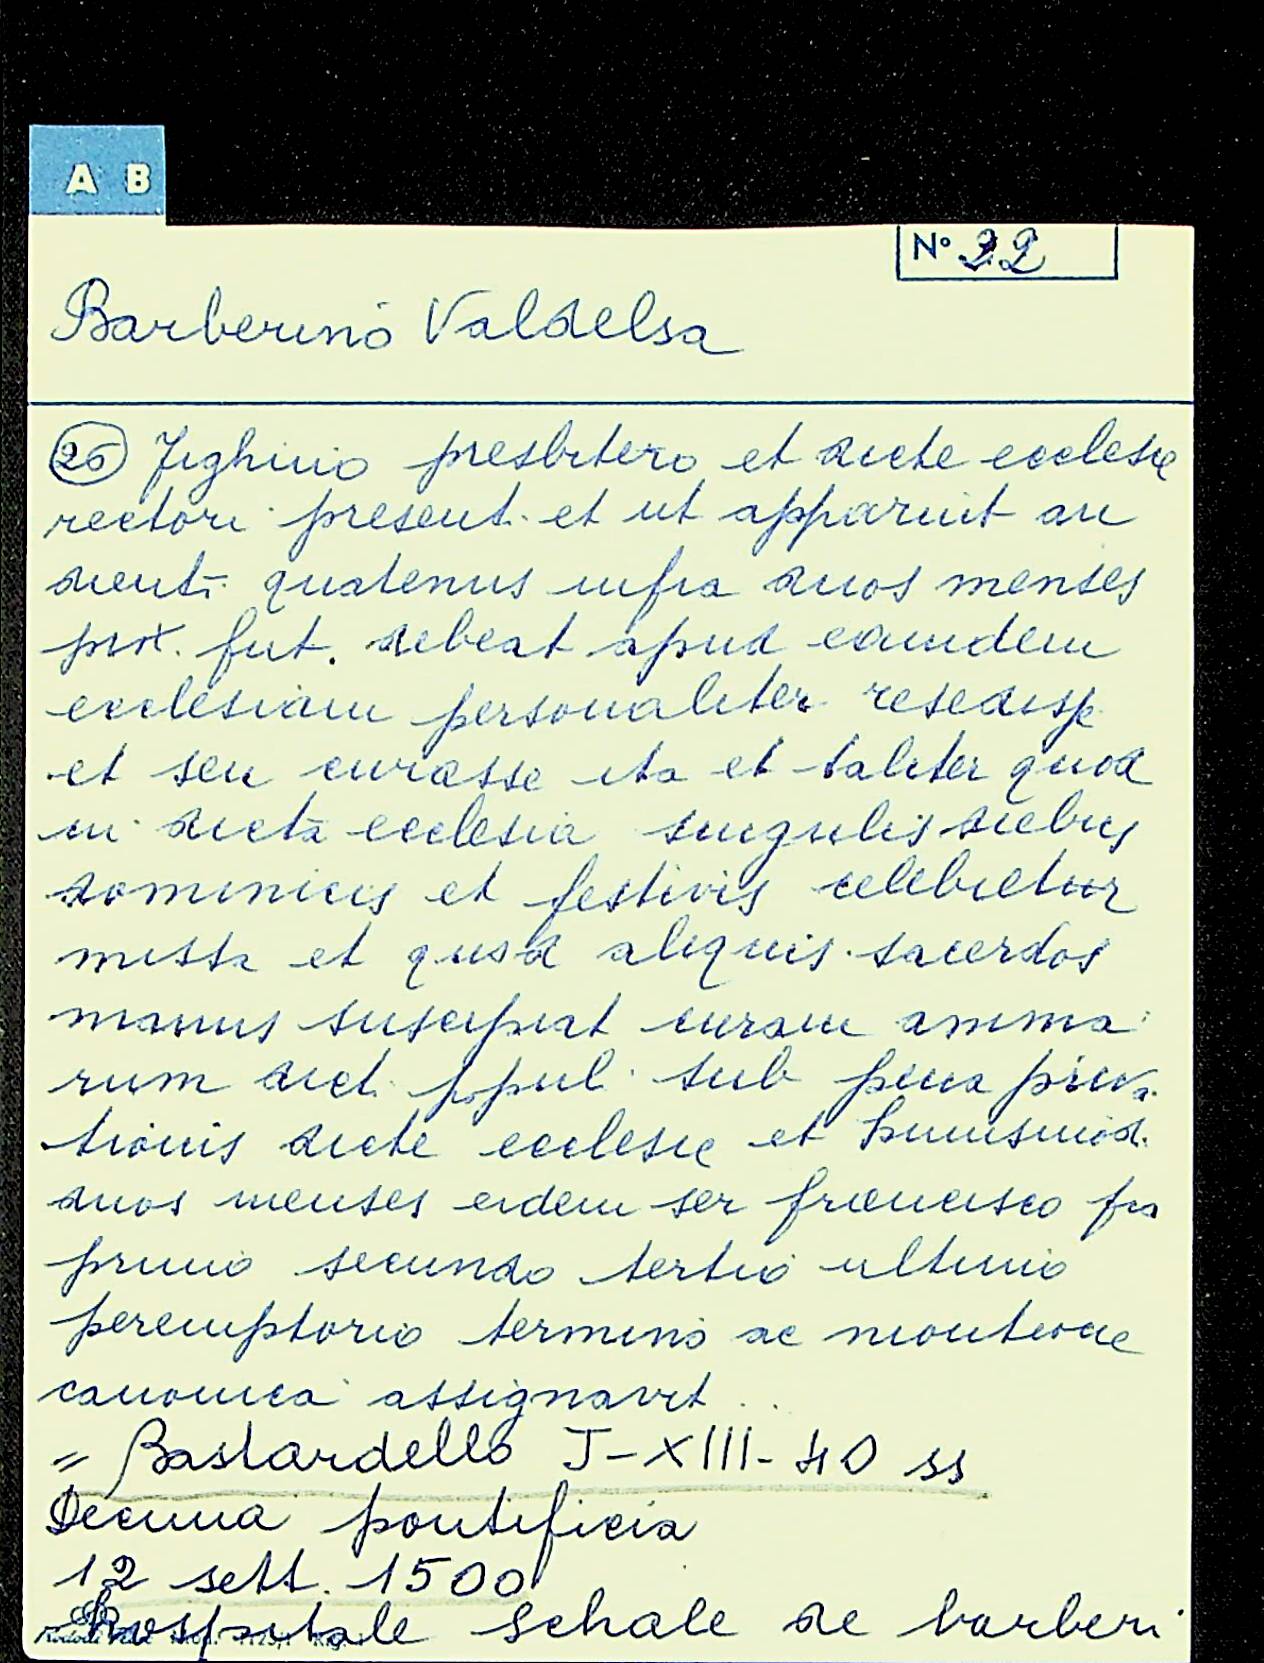 A B
N° 22
Barberino Valdelsa
26 Fighino presbitero et dicte ecclesie
rectori present. et ut apparuit au
dienti quatenus infra duos menses
prox. fut. debeat apud eamdem
ecclesiam personaliter resedisse
et seu curasse ita et taliter quod
in dicta ecclesia singulis diebus
dominicis et festivis celebretur
missa et quod aliquis sacerdos
manus suscipiat curam anima
rum dict. popul. sub pena priva
tionis dicte ecclesie et huiusmod.
duos menses eidem ser francisco pro
primo secundo tertio ultimo
peremptorio termino ac monitione
canonica assignavit ..
= Bastardello J-XIII-40 ss
Decima pontificia
12 sett. 1500
hospitale schale de barberi